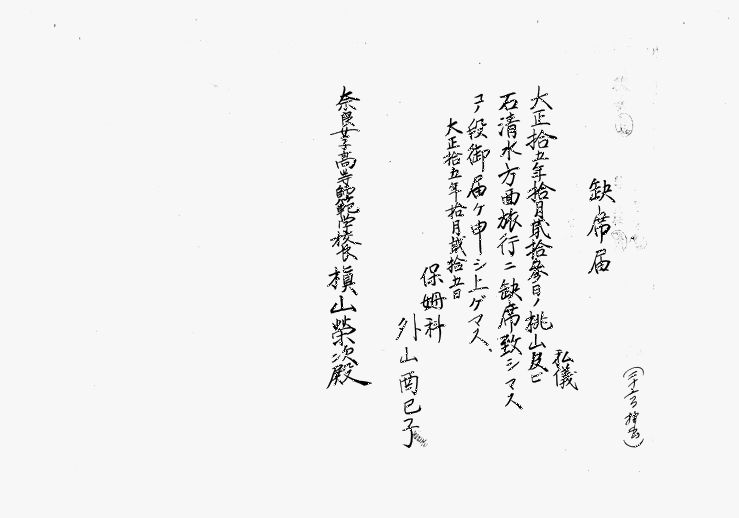 缺席届
私儀
大正拾五年拾月貳拾參日ノ桃山及ビ
石清水方面旅行ニ缺席致シマス
コノ段御届ケ申シ上ゲマス、
大正拾五年拾月貳拾五日
保姆科
外山酉己子
奈良女子高等師範学校長 槇山榮次殿